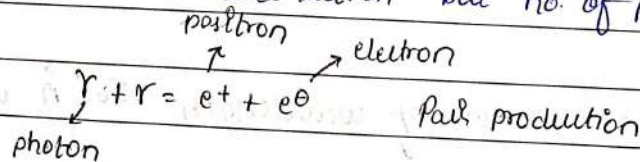 but no. of
positron
electron
γ + γ = e+ + e⊖ Pair production
photon